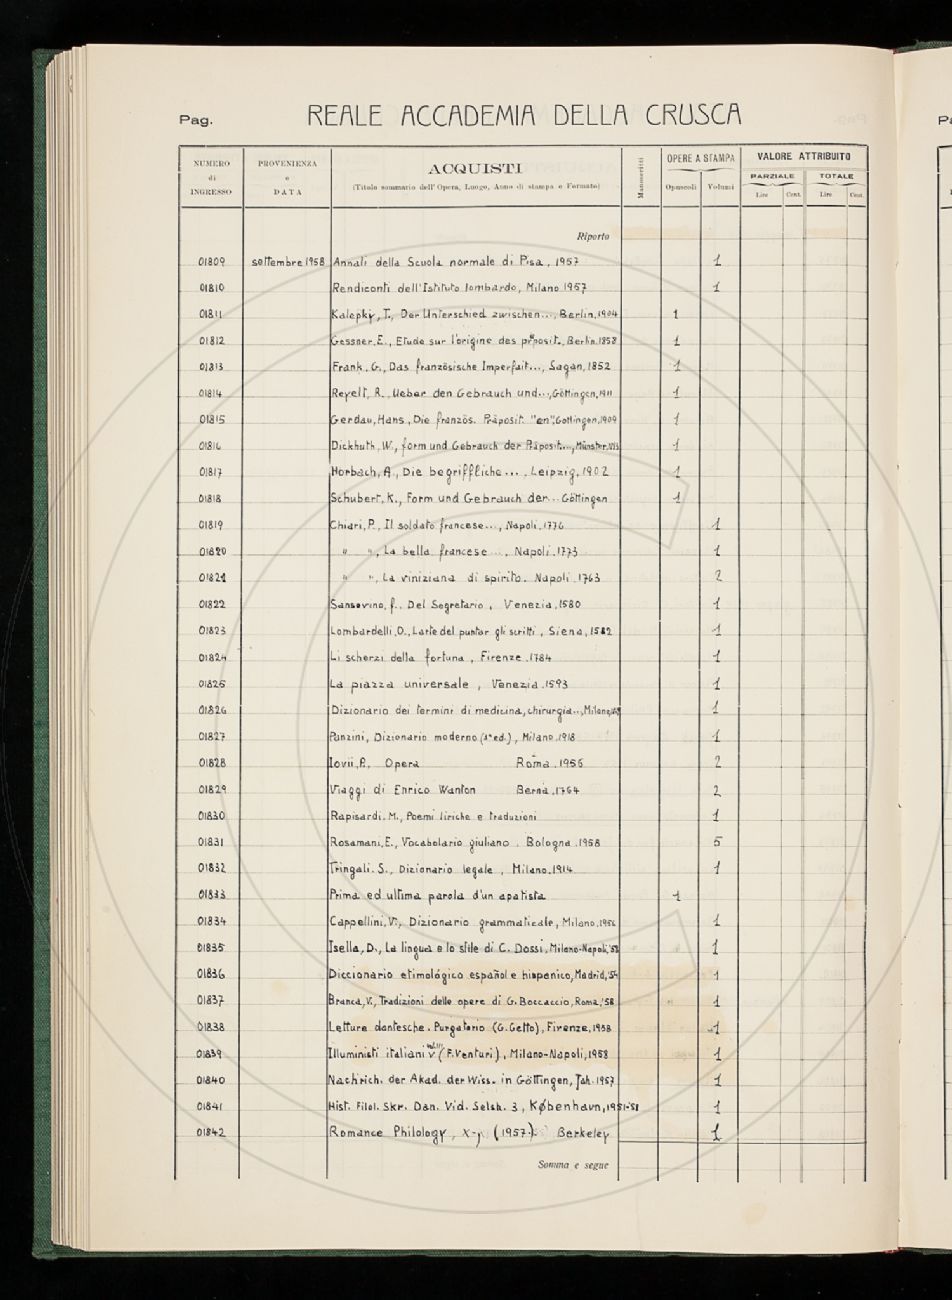 Pag.
REALE ACCADEMIA DELLA CRUSCA
NUMERO di INGRESSO
PROVENIENZA e DATA
ACQUISTI
(Titolo sommario dell' Opera, Luogo, Anno di stampa e Formato)
Manoscritti
OPERE A STAMPA
Opuscoli Volumi
VALORE ATTRIBUITO
PARZIALE TOTALE
Lire Cent. Lire Cent.
Riporto
01809 settembre 1958 Annali della Scuola normale di Pisa, 1957 1
01810 Rendiconti dell'Istituto lombardo, Milano 1957 1
01811 Kalepky, T., Der Unterschied zwischen..., Berlin, 1904 1
01812 Gessner, E., Etude sur l'origine des préposit., Berlin. 1858 1
01813 Frank. G., Das französische Imperfait..., Sagan, 1852 1
01814 R. Ueber den Gebrauch und..., Göttingen, 1911 1
01815 Gerdau, Hans., Die französ. Präposit. "en", Göttingen, 1909 1
01816 Dickhuth, W., Form und Gebrauch der Präposit..., Münster. 1
01817 Horbach, A., Die begriffliche.... Leipzig, 1902 1
01818 Schubert, K., Form und Gebrauch der... Göttingen 1
01819 Chiari, P., Il soldato francese..., Napoli, 1776 1
01820 " ", La bella francese..., Napoli. 1773 1
01821 " ", La viniziana di spirito. Napoli. 1763 2
01822 Sansovino, F., Del Segretario, Venezia, 1580 1
01823 Lombardelli, O., L'arte del puntar gli scritti, Siena, 1582 1
01824 Li scherzi della fortuna, Firenze. 1784 1
01825 La piazza universale, Venezia. 1593 1
01826 Dizionario dei termini di medicina, chirurgia..., Milano, 1
01827 Panzini, Dizionario moderno (3ª ed.), Milano. 1918 1
01828 Iovii, P., Opera Roma. 1956 2
01829 Viaggi di Enrico Wanton Berna. 1764 2
01830 Rapisardi. M., Poemi liriche e traduzioni 1
01831 Rosamani, E., Vocabolario giuliano. Bologna. 1958 5
01832 Tringali. S., Dizionario legale, Milano. 1914 1
01833 Prima ed ultima parola d'un apatista 1
01834 Cappellini, V., Dizionario grammaticale, Milano, 1956 1
01835 Isella, D., La lingua e lo stile di C. Dossi, Milano-Napoli, '58 1
01836 Diccionario etimológico español e hispanico, Madrid, '54 1
01837 Branca, V., Tradizioni delle opere di G. Boccaccio, Roma, '58 1
01838 Letture dantesche. Purgatorio (G. Getto), Firenze, 1958 1
01839 Illuministi italiani (F. Venturi), Milano-Napoli, 1958 1
01840 Nachrich. der Akad. der Wiss. in Göttingen, Jah. 1957 1
01841 Hist. Filol. Skr. Dan. Vid. Selsk. 3, København, 1
01842 Romance Philology, (1957) Berkeley 1
Somma e segue